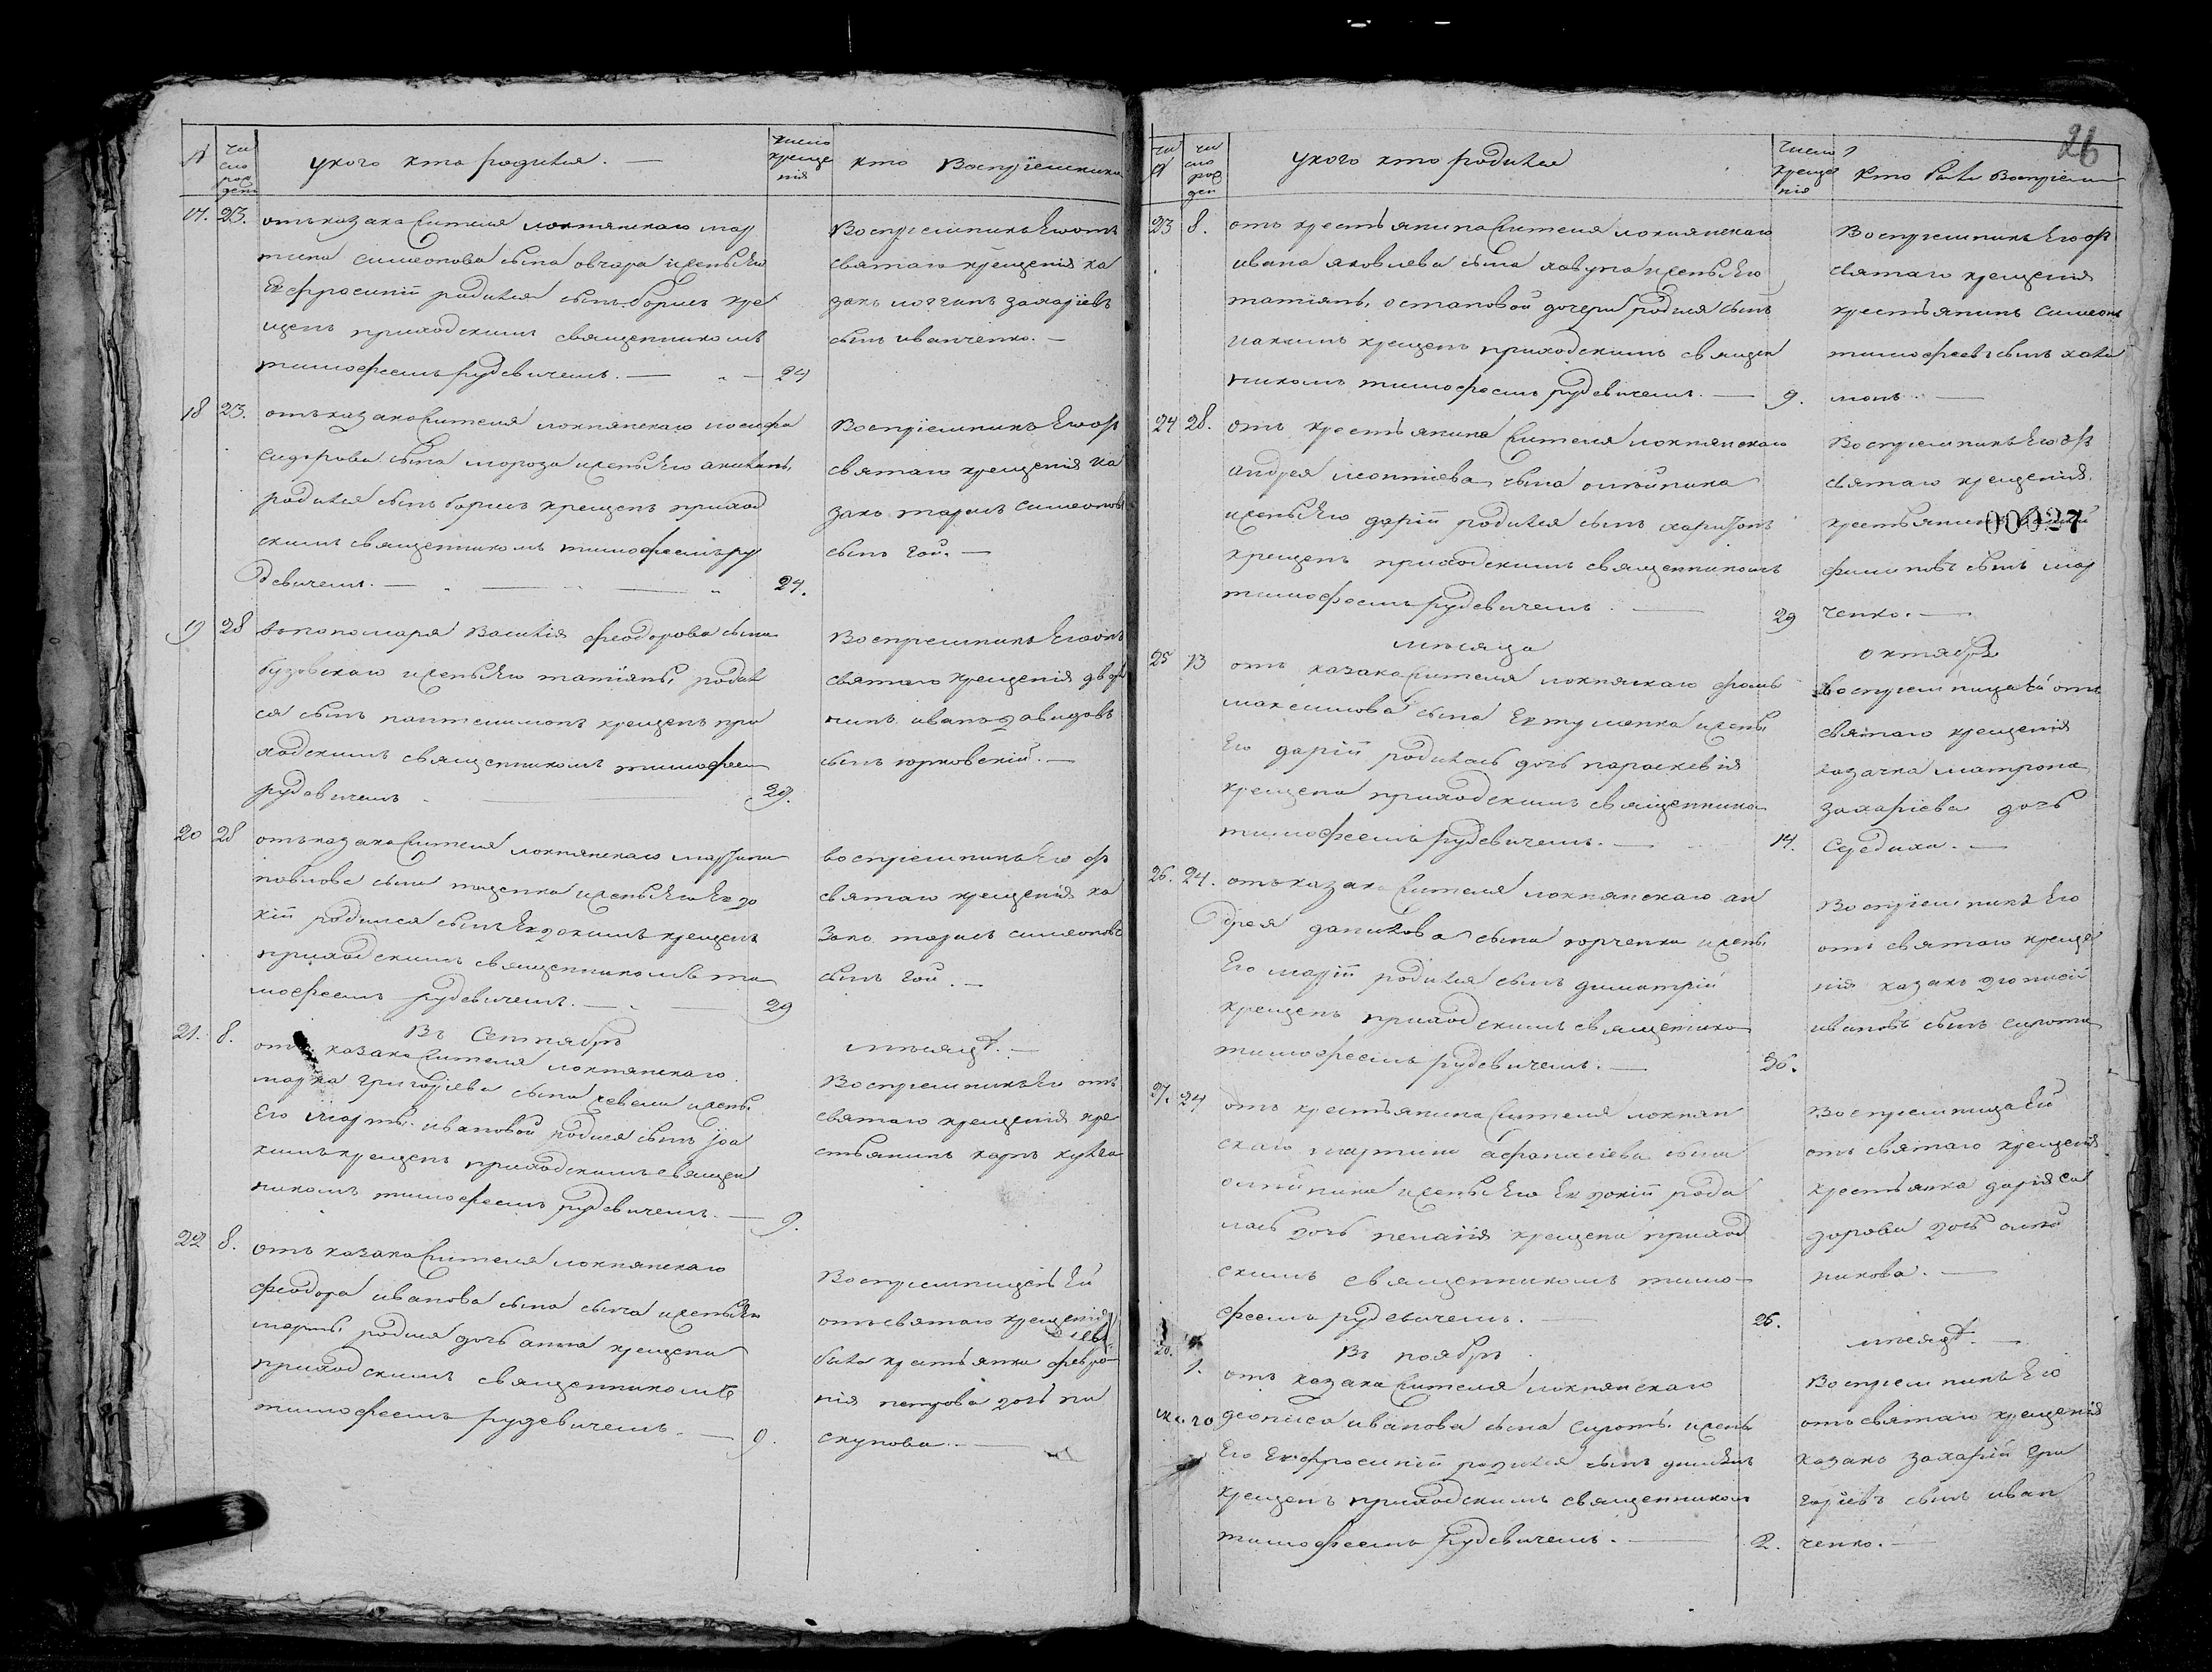 N
чи
сло
рож
ден
у кого кто родился. —
число
креще
нія
кто Воспріемники
17. 23. отъ казака жителя локнянскаго мар
тина симеонова сына овчара и жены Его
Ефросиніи родился сынъ борисъ кре
щенъ приходскимъ священникомъ
тимофеемъ рудевичемъ. — 24
Воспріемникъ Его отъ
святаго крещенія ка
закъ логгинъ захаріевъ
сынъ иванченко. —
18 23. отъ казака жителя локнянскаго иосифа
сидорова сына мороза и жены Его
родился сынъ борисъ крещенъ приход
скимъ священникомъ тимофеемъ ру
девичемъ. — 24.
Воспріемникъ Его от
святаго крещенія ка
закъ тарасъ симеоновъ
сынъ гой. —
19 28 пономаря Василія феодорова сына
бузовскаго и жены Его татіяны родил
ся сынъ пантелимонъ крещенъ при
ходскимъ священникомъ тимофеем
рудевичемъ — 29.
Воспріемникъ Его отъ
святаго крещенія двор
нинъ иванъ давидовъ
сынъ юрковскій. —
20 28 отъ казака жителя локнянскаго мартина
павлова сына тищенка и жены Его Евдо
кіи родился сынъ Евдокимъ крещенъ
приходскимъ священникомъ ти
мофеемъ рудевичемъ. — 29
воспріемникъ Его от
святаго крещенія ка
закъ тарасъ симеоновъ
сынъ гой. —
Въ Сентябрѣ мѣсяцѣ. —
21. 8. отъ казака жителя локнянскаго
марка григоріева сына и жены
Его марфы ивановой родился сынъ іоа
кимъ крещенъ приходскимъ священ
никомъ тимофеемъ рудевичемъ. — 9.
Воспріемникъ Его отъ
святаго крещенія кре
стьянинъ карпъ
22 8. отъ казака жителя локнянскаго
феодора иванова сына сыча и жены Его
марфы родился дочь анна крещена
приходскимъ священникомъ
тимофеемъ рудевичемъ. — 9.
Воспріемницею Ей
отъ святаго крещенія
была крестьянка февро
нія петрова дочь пи
скунова. —
26
чи
N
чи
сло
рож
ден
у кого кто родился
число
креще
нія
Кто были Воспріемн
23 8. отъ крестьянина жителя локнянскаго
ивана яковлева сына кавуна и жены Его
татіяны остаповой дочери родился сынъ
иакимъ крещенъ приходскимъ священ
никомъ тимофеемъ рудевичемъ. — 9.
Воспріемникъ Его от
святаго крещенія
крестьянинъ симеонъ
тимофеевъ сынъ
24 28. отъ крестьянина жителя локнянскаго
андрея леонтіева сына олійника
и жены Его даріи родился сынъ харитонъ
крещенъ приходскимъ священникомъ
тимофеемъ рудевичемъ. — 29
Воспріемникъ Его от
святаго крещенія
крестьянинъ
00027
филиповъ сынъ мар
ченко. —
мѣсяца октября
25 13 отъ казака жителя локнянскаго фомы
максимова сына Евтушенка и жены
Его даріи родилась дочь параскевія
крещена приходскимъ священником
тимофеемъ рудевичемъ. — 14.
воспріемница Ей отъ
святаго крещенія
казачка матрона
захаріева дочь
Середиха. —
26. 24. отъ казака жителя локнянскаго ан
дрея данилова сына юрченка и жены
Его маріи родился сынъ димитрій
крещенъ приходскимъ священико
тимофеемъ рудевичемъ. — 26.
Воспріемникъ Его
отъ святаго креще
нія казакъ діонисій
ивановъ сынъ сирота
27. 24 отъ крестьянина жителя локнян
скаго мартина афанасіева сына
олійника и жены Его Евдокіи роди
лась дочь пелагія крещена приход
скимъ священникомъ тимо-
феемъ рудевичемъ. — 25.
Воспріемница Ей
отъ святаго крещенія
крестьянка дарія си
дорова дочь олій
никова. —
Въ ноябрѣ мѣсяцѣ. —
28. 1. отъ казака жителя локнянскаго
деониса иванова сына сироты и жены
Его Евфросиніи родился сынъ
крещенъ приходскимъ священником
тимофеемъ рудевичемъ. — 2.
Воспріемникъ Его
отъ святаго крещенія
казакъ захарій гри
горіевъ сынъ иван
ченко. —